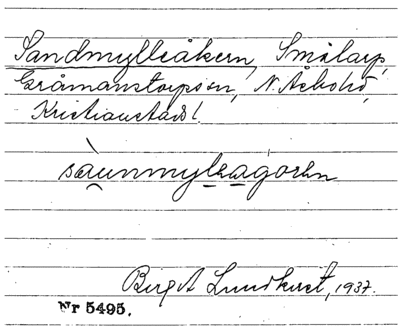 Sandmylleåkern, Smålarp,
Gråmanstorps sn, N. Åsbo hd,
Kristianstads l.
sàunmyleagórn
Birgit Lundkvist, 1937.
Nr 5495.